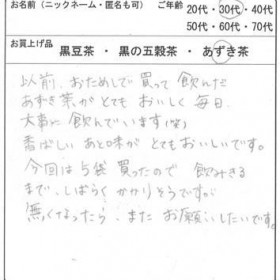 お名前（ニックネーム・匿名も可）　ご年齢　20代・30代・40代
50代・60代・70代
お買上げ品
黒豆茶　・　黒の五穀茶　・　あずき茶
以前、おためしで買って飲んだ
あずき茶がとてもおいしく毎日
大事に飲んでいます(笑)
香ばしいあと味がとてもおいしいです。
今回は5袋買ったので飲みきる
まで、しばらくかかりそうですが
無くなったら、またお願いしたいです。